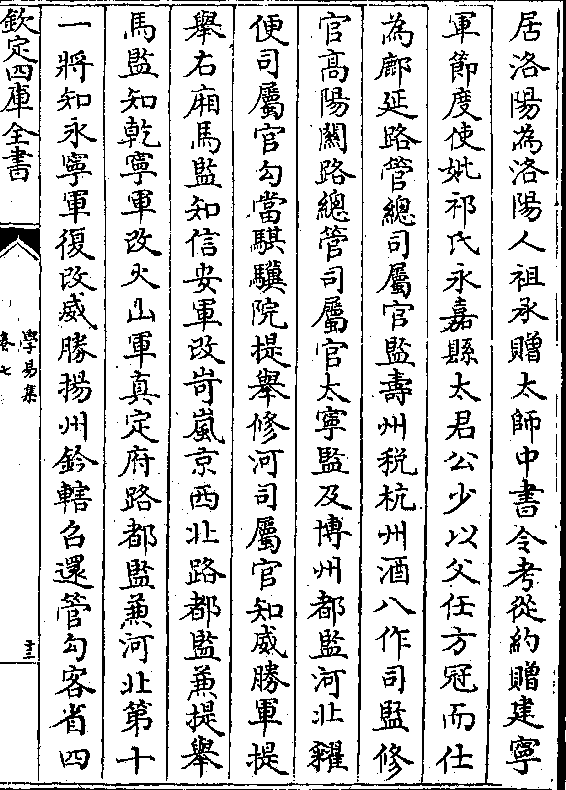 居洛陽為洛陽人祖承贈太師中書令考從約贈建寧
軍節度使妣祁氏永嘉縣太君公少以父任方冠而仕
為鄜延路管總司屬官監壽州税杭州酒八作司監修
官高陽關路總管司屬官太寧監及博州都監河北糴
便司屬官勾當騏驥院提舉修河司屬官知威勝軍提
舉右廂馬監知信安軍改岢嵐京西北路都監兼提舉
馬監知乾寧軍改火山軍真定府路都監兼河北第十
一將知永寧軍復改威勝揚州鈐轄召還管勾客省四
欽定四庫全書
學易集
卷七